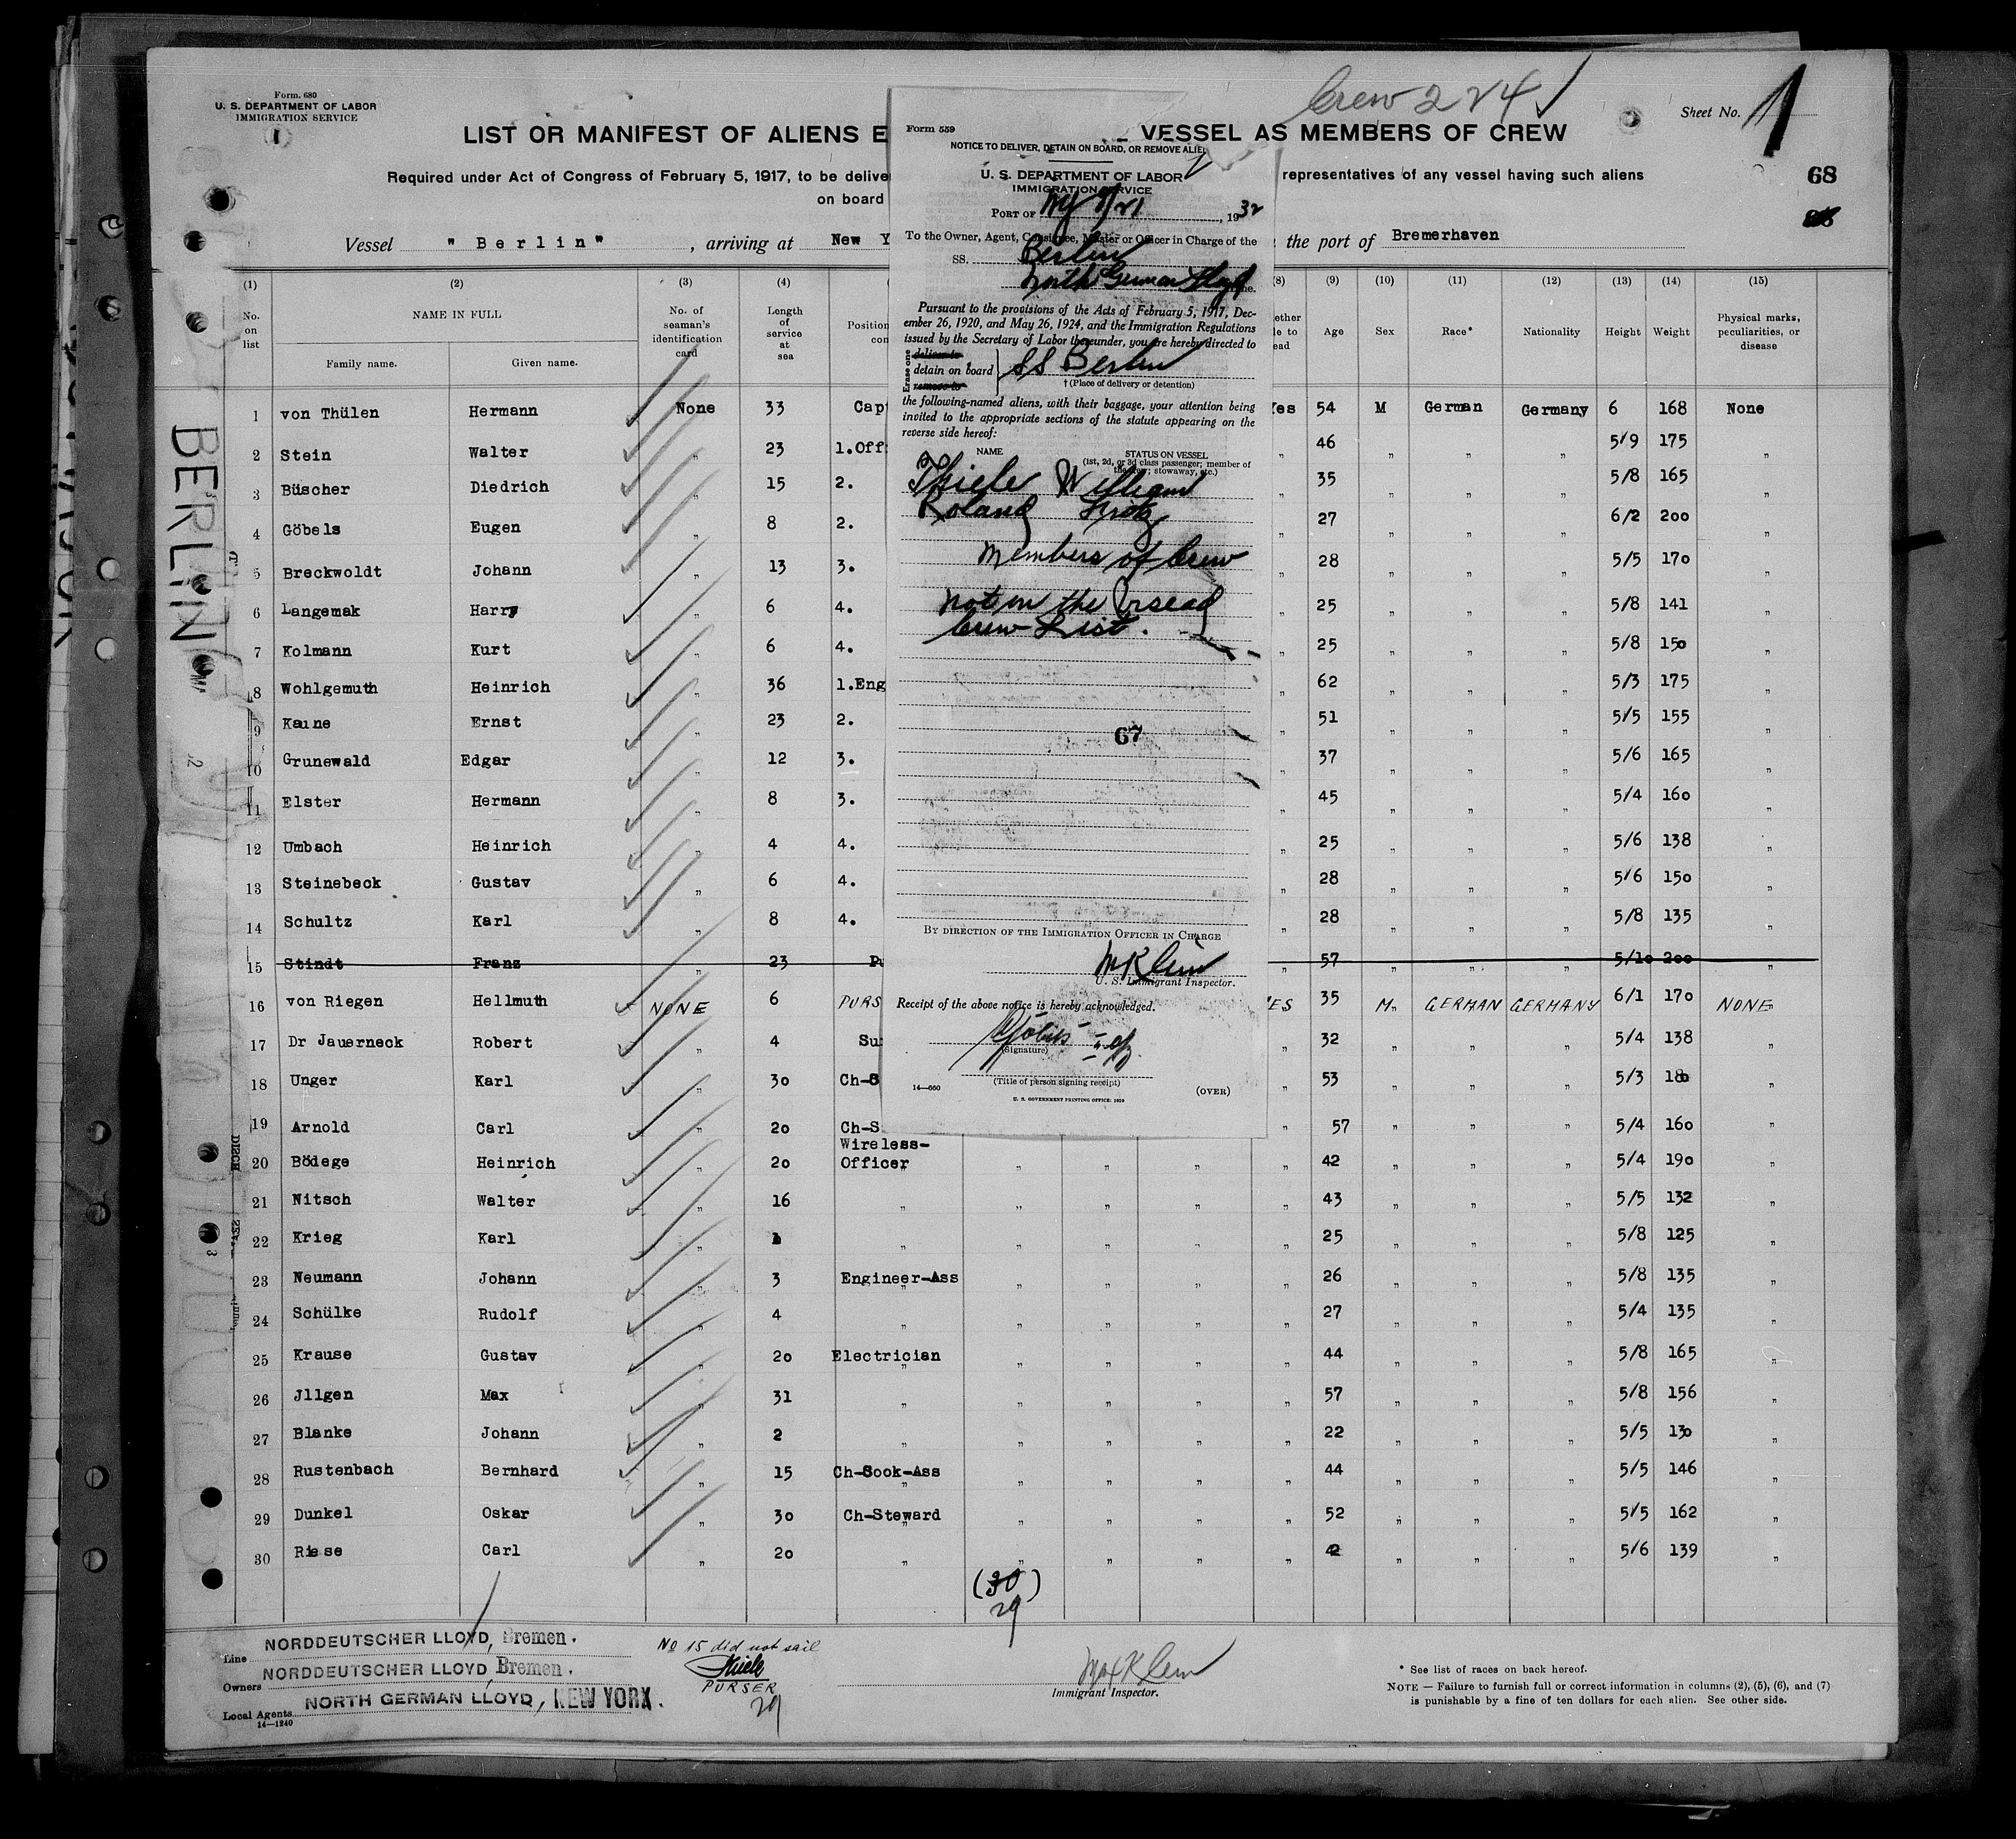 Crew 224
Form. 680
U. S. DEPARTMENT OF LABOR
IMMIGRATION SERVICE
1
Sheet No. 1
LIST OR MANIFEST OF ALIENS E
VESSEL AS MEMBERS OF CREW
Required under Act of Congress of February 5, 1917, to be delive
representatives of any vessel having such aliens
on board
68
Vessel "Berlin", arriving at New Y
the port of Bremerhaven
(1) (2) (3) (4) (8) (9) (10) (11) (12) (13) (14) (15)
No. on list
NAME IN FULL
Family name. Given name.
No. of seaman's identification card
Length of service at sea
Position
con
ether
le to
ead
Age Sex Race* Nationality Height Weight
Physical marks, peculiarities, or disease
1 von Thülen Hermann None 33 Capt Yes 54 M German Germany 6 168 None
2 Stein Walter " 23 1.Off " 46 " " " 5/9 175 "
3 Büscher Diedrich " 15 2. " 35 " " " 5/8 165 "
4 Göbels Eugen " 8 2. " 27 " " " 6/2 200 "
5 Breckwoldt Johann " 13 3. " 28 " " " 5/5 170 "
6 Langemak Harry " 6 4. " 25 " " " 5/8 141 "
7 Kolmann Kurt " 6 4. " 25 " " " 5/8 150 "
8 Wohlgemuth Heinrich " 36 1.Eng " 62 " " " 5/3 175 "
9 Kaune Ernst " 23 2. " 51 " " " 5/5 155 "
10 Grunewald Edgar " 12 3. " 37 " " " 5/6 165 "
11 Elster Hermann " 8 3. " 45 " " " 5/4 160 "
12 Umbach Heinrich " 4 4. " 25 " " " 5/6 138 "
13 Steinebeck Gustav " 6 4. " 28 " " " 5/6 150 "
14 Schultz Karl " 8 4. " 28 " " " 5/8 135 "
15 Stindt Franz " 23 Pu " 57 " " " 5/10 200 "
16 von Riegen Hellmuth NONE 6 PURS YES 35 M" GERMAN GERMANY 6/1 170 NONE
17 Dr Jauerneck Robert " 4 Su " 32 " " " 5/4 138 "
18 Unger Karl " 30 Ch-S " 53 " " " 5/3 180 "
19 Arnold Carl " 20 Ch-S " 57 " " " 5/4 160 "
Wireless-
20 Bödege Heinrich " 20 Officer " " " " 42 " " " 5/4 190 "
21 Nitsch Walter " 16 " " " " " 43 " " " 5/5 132 "
22 Krieg Karl " " " " " " 25 " " " 5/8 125 "
23 Neumann Johann " 3 Engineer-Ass " " " " 26 " " " 5/8 135 "
24 Schülke Rudolf " 4 " " " " " 27 " " " 5/4 135 "
25 Krause Gustav " 20 Electrician " " " " 44 " " " 5/8 165 "
26 Jllgen Max " 31 " " " " " 57 " " " 5/8 156 "
27 Blanke Johann " 2 " " " " " 22 " " " 5/5 130 "
28 Rustenbach Bernhard " 15 Ch-Cook-Ass " " " " 44 " " " 5/5 146 "
29 Dunkel Oskar " 30 Ch-Steward " " " " 52 " " " 5/5 162 "
30 Riese Carl " 20 " " " " " 42 " " " 5/6 139 "
(30)
29
Line NORDDEUTSCHER LLOYD, Bremen.
Owners NORDDEUTSCHER LLOYD, Bremen.
Local Agents NORTH GERMAN LLOYD, NEW YORK.
14—1240
No 15 did not sail
Thiele
PURSER
29
Max Klein
Immigrant Inspector.
* See list of races on back hereof.
NOTE — Failure to furnish full or correct information in columns (2), (5), (6), and (7)
is punishable by a fine of ten dollars for each alien. See other side.
BERLIN
Form 559
NOTICE TO DELIVER, DETAIN ON BOARD, OR REMOVE ALIE
U. S. DEPARTMENT OF LABOR
IMMIGRATION SERVICE
PORT OF NY 9/21, 1932
To the Owner, Agent, Consignee, Master or Officer in Charge of the
SS. Berlin
North German Lloyd Line.
Pursuant to the provisions of the Acts of February 5, 1917, Dec-
ember 26, 1920, and May 26, 1924, and the Immigration Regulations
issued by the Secretary of Labor thereunder, you are hereby directed to
Erase one
deliver to
detain on board
remove to
SS Berlin
† (Place of delivery or detention)
the following-named aliens, with their baggage, your attention being
invited to the appropriate sections of the statute appearing on the
reverse side hereof:
NAME
STATUS ON VESSEL
(1st, 2d, or 3d class passenger; member of
the crew; stowaway, etc.)
Thiele William
Roland Fritz
Members of Crew
not on the Visead
Crew List.
67
BY DIRECTION OF THE IMMIGRATION OFFICER IN CHARGE
M Klein
U. S. Immigrant Inspector.
Receipt of the above notice is hereby acknowledged.
(Signature)
(Title of person signing receipt)
14—660
(OVER)
U. S. GOVERNMENT PRINTING OFFICE: 1929